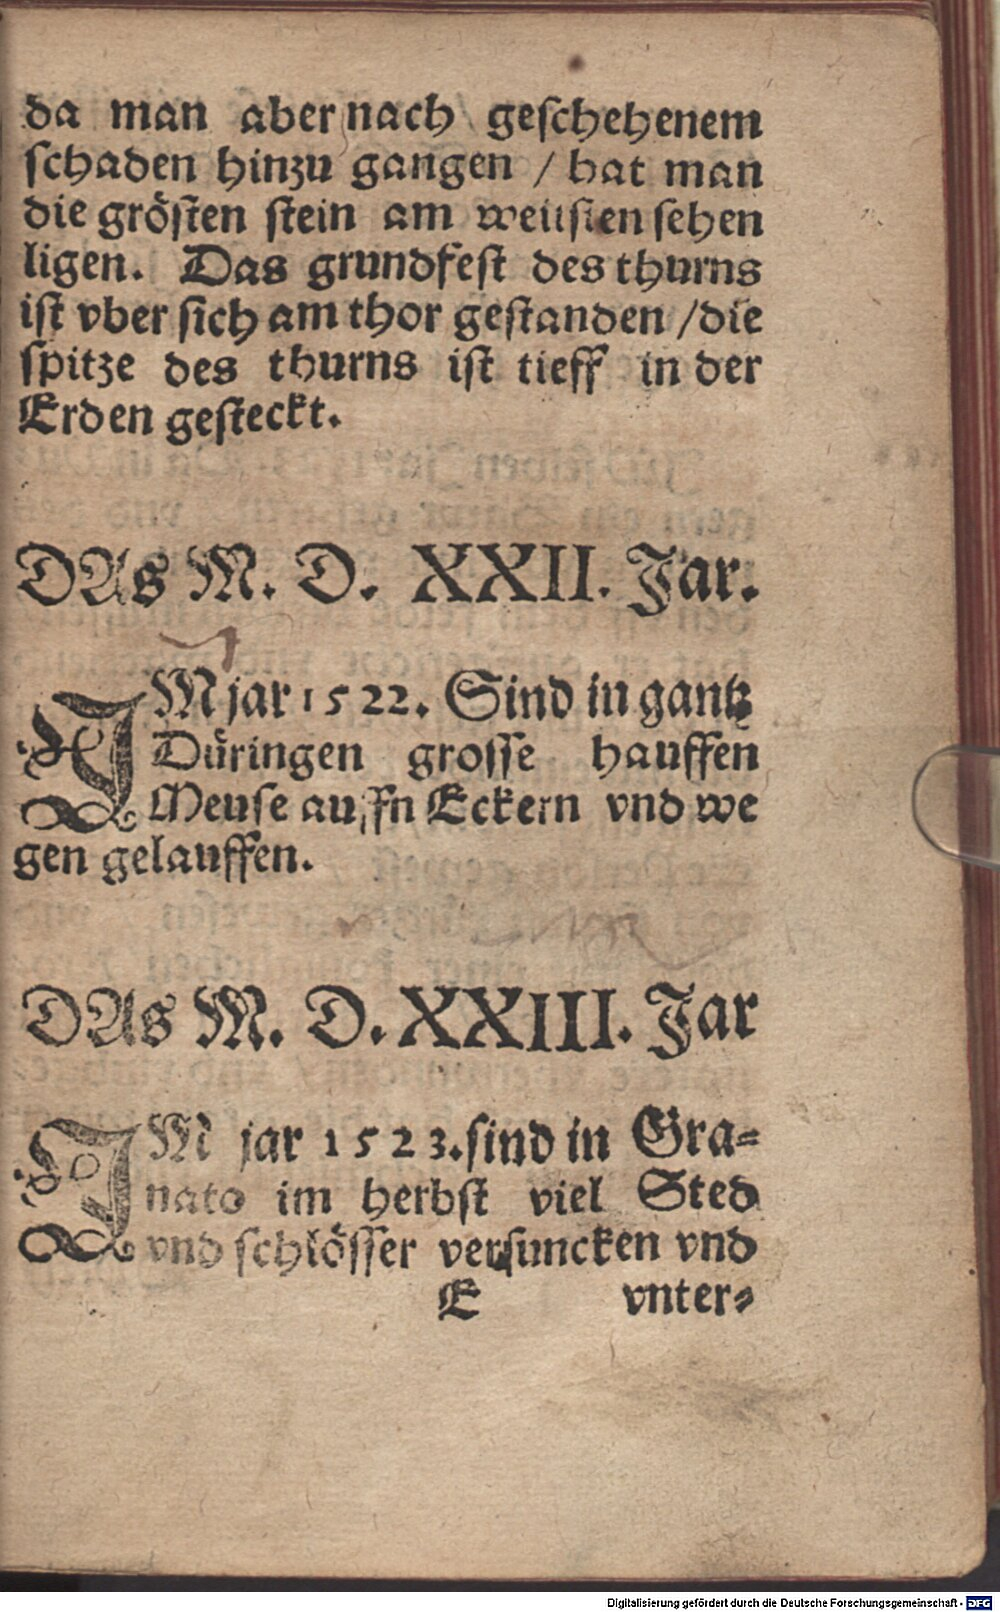 da man aber nach geschehenem
schaden hinzu gangen / hat man
die grösten stein am weitisten sehen
ligen. Das grundfest des thurns
ist vber sich am thor gestanden / die
spitze des thurns ist tieff in der
Erden gesteckt.
DAs M. D. XXII. Jar.
IM jar 1522. Sind in gantz
Düringen grosse hauffen
Meuse auffn Eckern vnd we
gen gelauffen.
DAs M. D. XXIII. Jar
IM jar 1523. sind in Gra-
nato im herbst viel Sted
vnd schlösser versuncken vnd
E vnter-
Digitalisierung gefördert durch die Deutsche Forschungsgemeinschaft - DFG